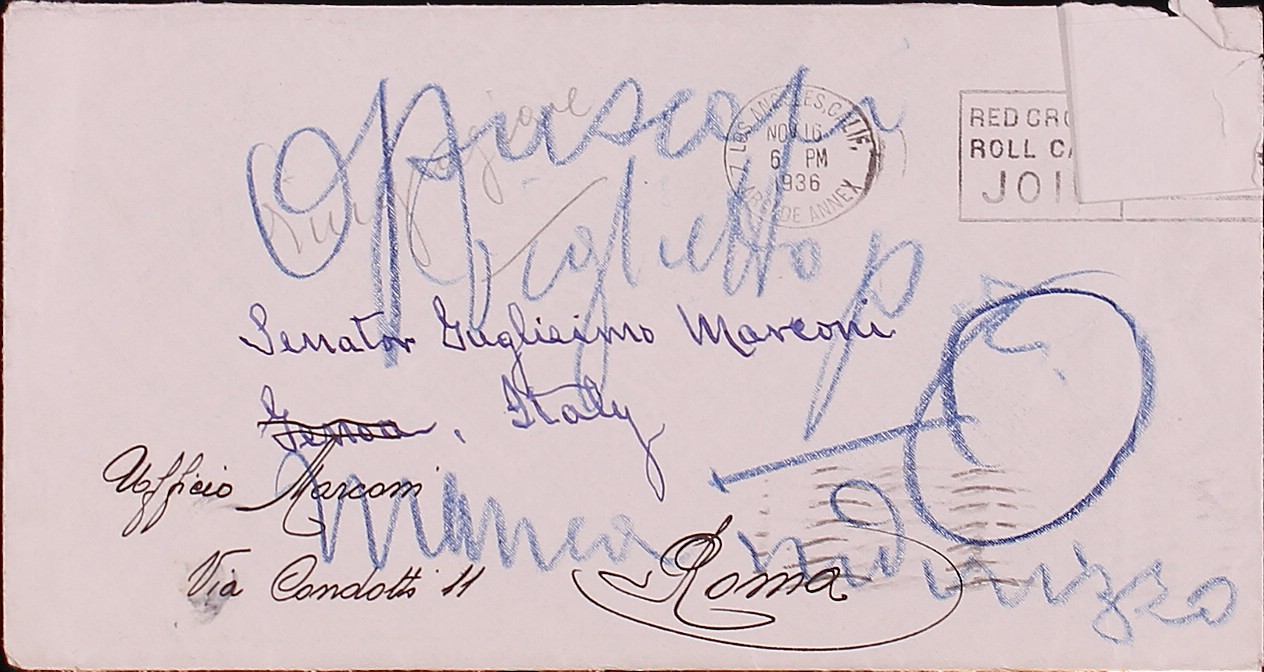 LOS ANGELES, CALIF.
NOV 16
6 PM
1936
ARCADE ANNEX
RED CRO
ROLL CA
JOI
Senator Guglielmo Marconi
Genoa, Italy
Ufficio Marconi
Via Condotti 11
Roma
manca indirizzo